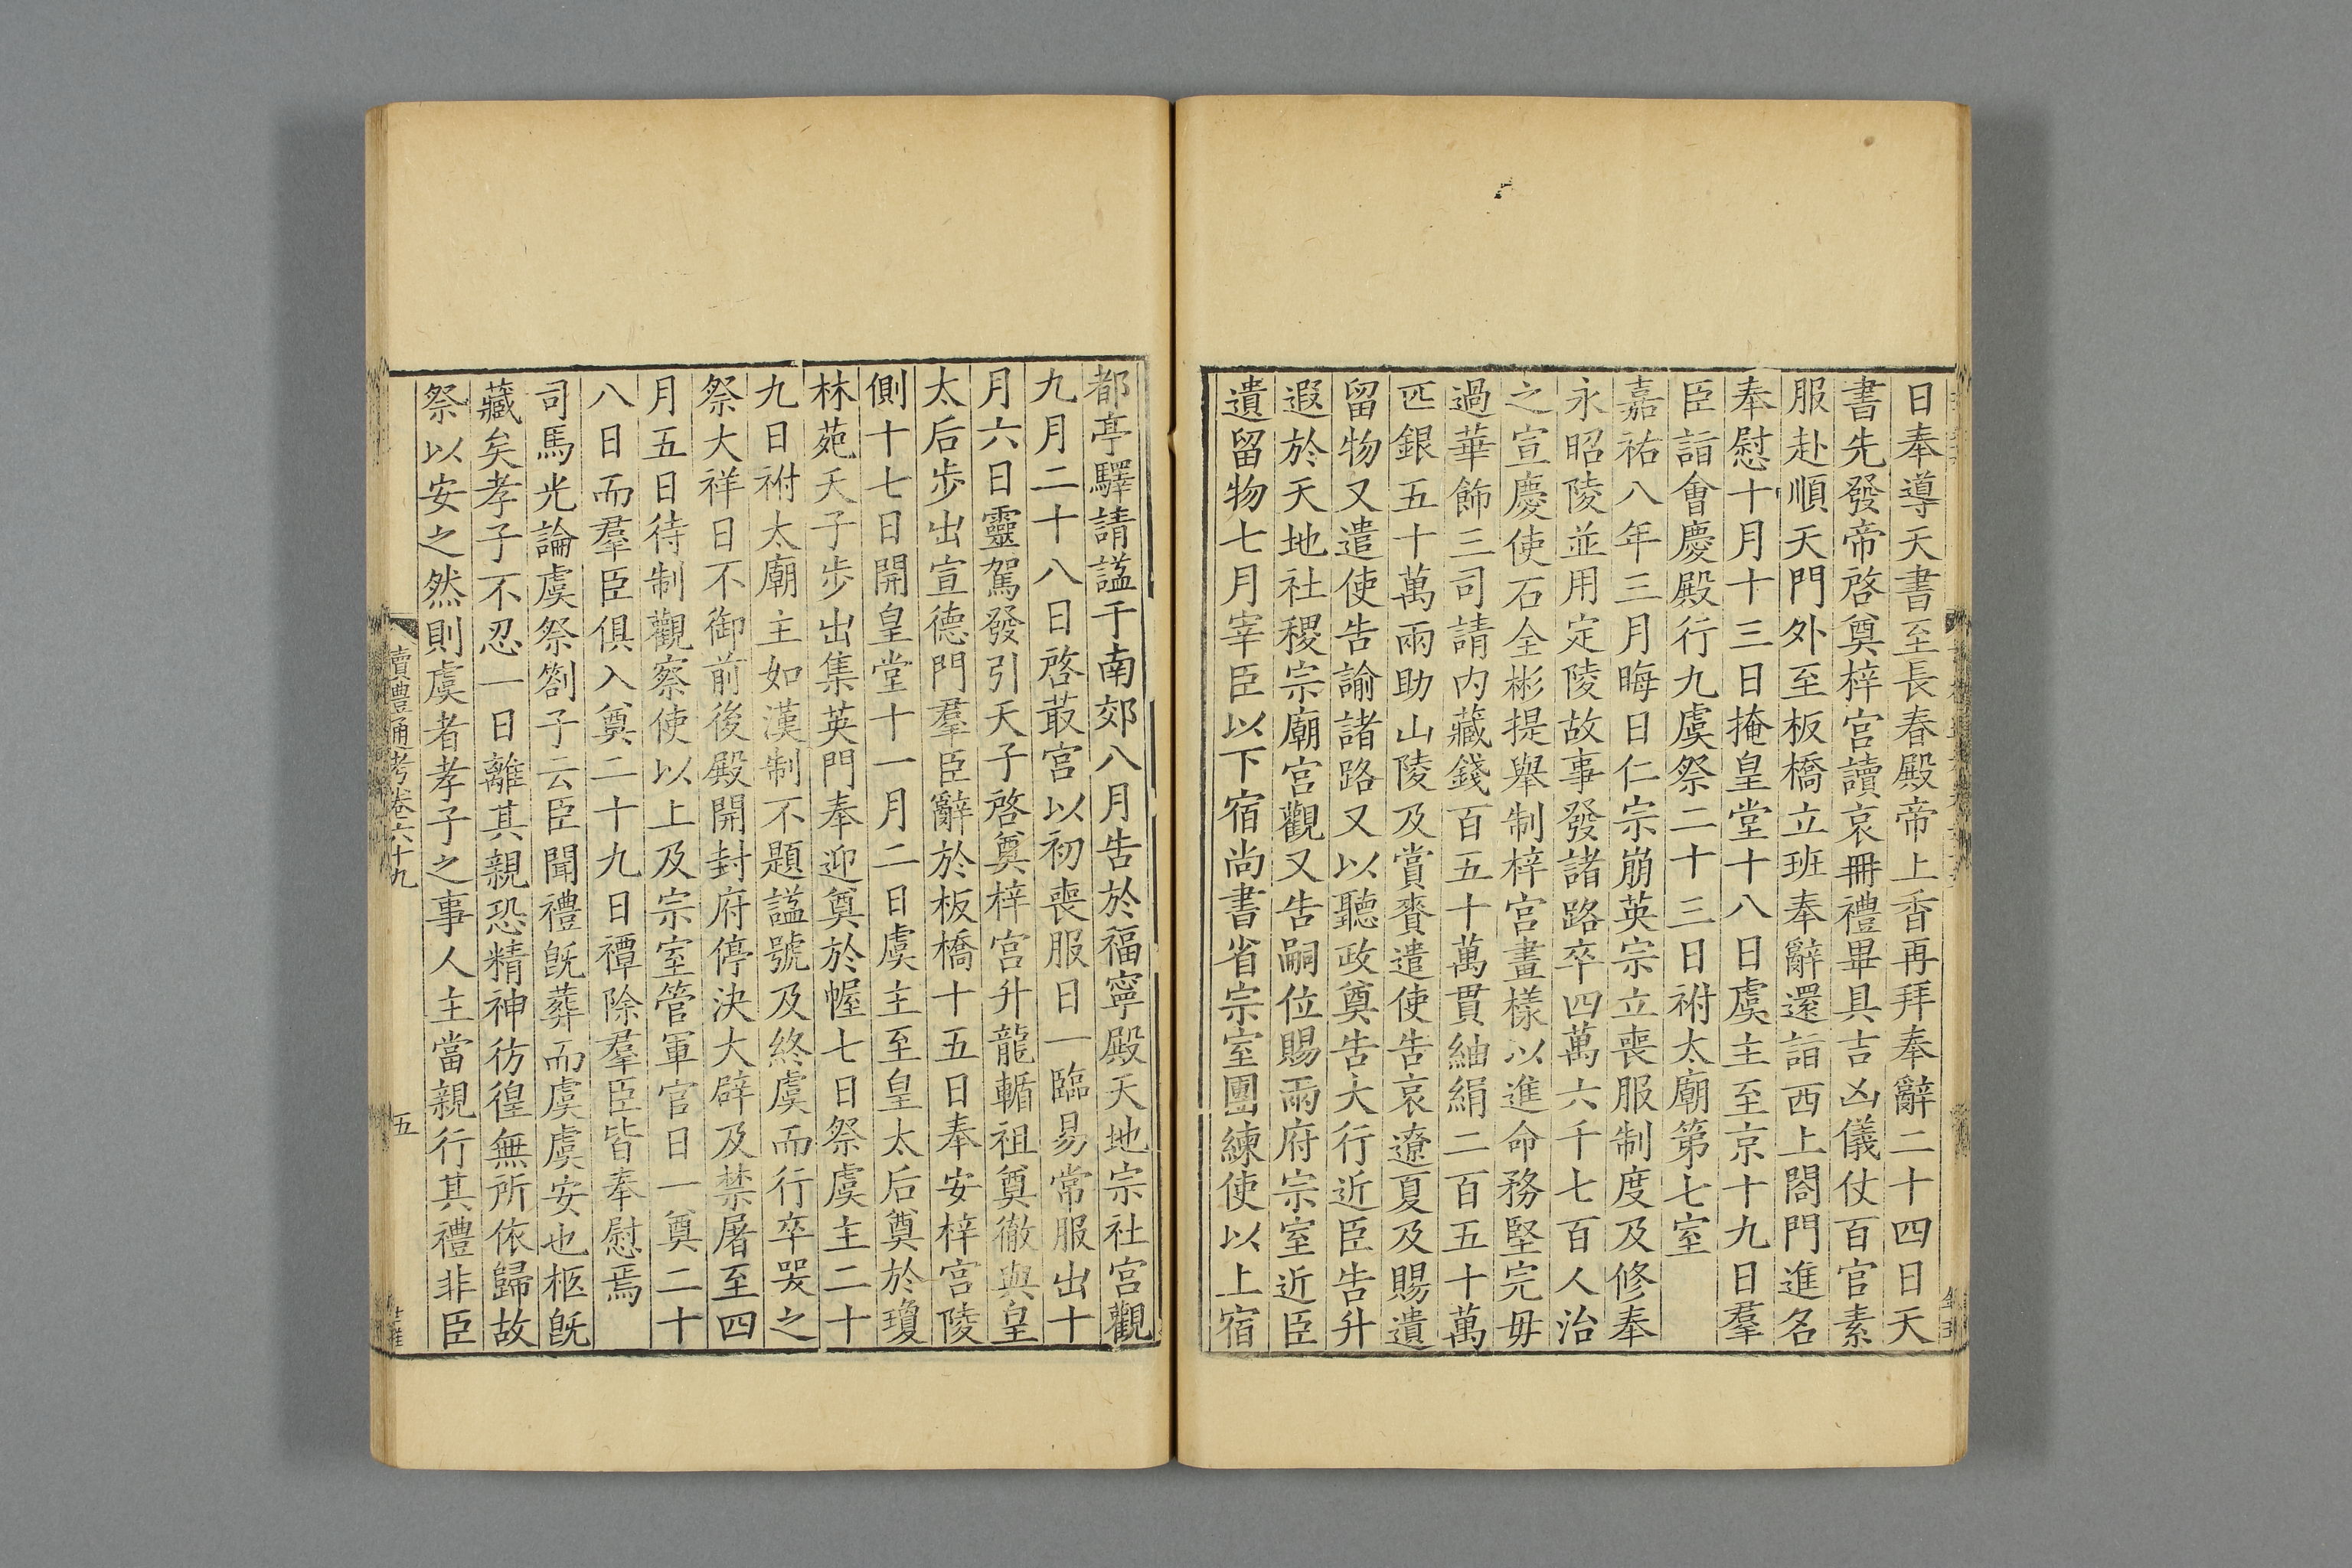 日奉導天書至長春殿帝上香再拜奉辭二十四日天
書先發帝啓奠梓宮讀哀冊禮畢具吉凶儀仗百官素
服赴順天門外至板橋立班奉辭還詣西上閤門進名
奉慰十月十三日掩皇堂十八日虞主至京十九日羣
臣詣會慶殿行九虞祭二十三日祔太廟第七室
嘉祐八年三月晦日仁宗崩英宗立喪服制度及修奉
永昭陵並用定陵故事發諸路卒四萬六千七百人治
之宣慶使石全彬提舉制梓宮畫樣以進命務堅完毋
過華飾三司請內藏錢百五十萬貫紬絹二百五十萬
匹銀五十萬兩助山陵及賞賚遣使告哀遼夏及賜遺
留物又遣使告諭諸路又以聽政奠告大行近臣告升
遐於天地社稷宗廟宮觀又告嗣位賜兩府宗室近臣
遺留物七月宰臣以下宿尚書省宗室團練使以上宿
都亭驛請諡于南郊八月告於福寧殿天地宗社宮觀
九月二十八日啓菆宮以初喪服日一臨易常服出十
月六日靈駕發引天子啓奠梓宮升龍輴祖奠徹與皇
太后步出宣德門羣臣辭於板橋十五日奉安梓宮陵
側十七日開皇堂十一月二日虞主至皇太后奠於瓊
林苑天子步出集英門奉迎奠於幄七日祭虞主二十
九日祔太廟主如漢制不題諡號及終虞而行卒哭之
祭大祥日不御前後殿開封府停決大辟及禁屠至四
月五日待制觀察使以上及宗室管軍官日一奠二十
八日而羣臣俱入奠二十九日禫除羣臣皆奉慰焉
司馬光論虞祭劄子云臣聞禮旣葬而虞虞安也柩旣
藏矣孝子不忍一日離其親恐精神彷徨無所依歸故
祭以安之然則虞者孝子之事人主當親行其禮非臣
讀禮通考卷六十九
五